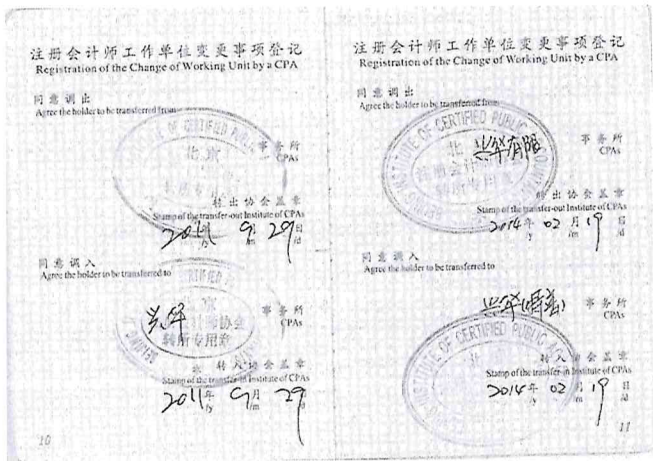 注册会计师工作单位变更事项登记
Registration of the Change of Working Unit by a CPA
同意调出
Agree the holder to be transferred from
事务所
CPAs
转出协会盖章
Stamp of the transfer-out Institute of CPAs
2011年 9月 29日
/y /m /d
同意调入
Agree the holder to be transferred to
兴华
事务所
CPAs
转所专用章
转入协会盖章
Stamp of the transfer-in Institute of CPAs
2011年 9月 29日
/y /m /d
10
注册会计师工作单位变更事项登记
Registration of the Change of Working Unit by a CPA
同意调出
Agree the holder to be transferred from
INSTITUTE OF CERTIFIED PUBLIC
北
兴华有限
事务所
CPAs
转所专用章
转出协会盖章
Stamp of the transfer-out Institute of CPAs
2014年 02月 19日
/y /m /d
同意调入
Agree the holder to be transferred to
事务所
CPAs
INSTITUTE OF CERTIFIED PUBLIC
北
转入协会盖章
Stamp of the transfer-in Institute of CPAs
2014年 02月 19日
/y /m /d
11